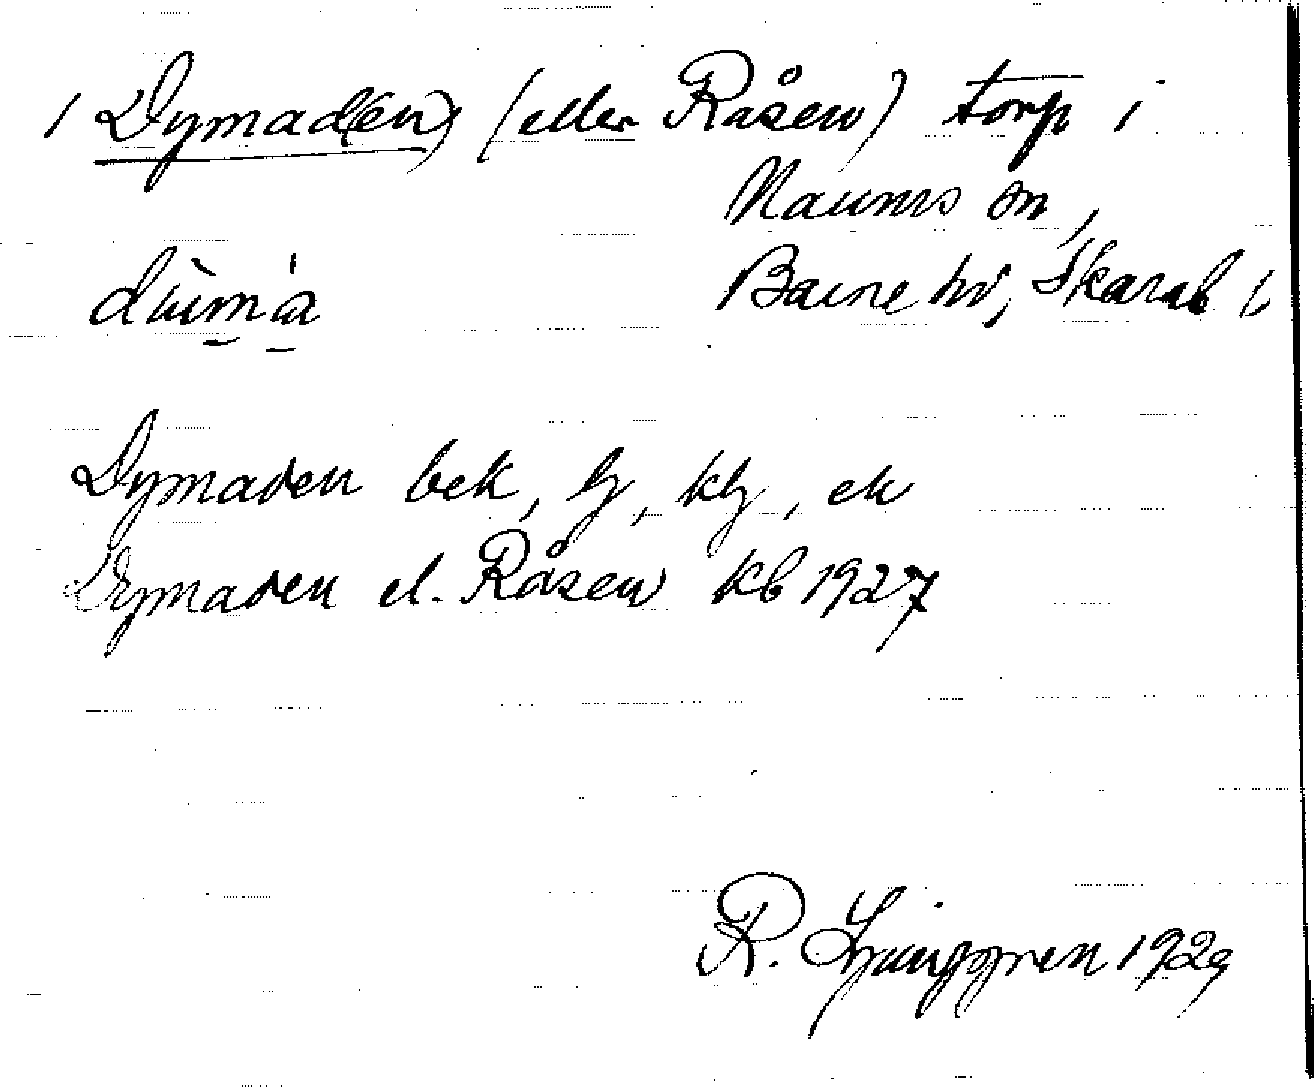 1 Dymad(en) (eller Råsen) torp i
Naums sn,
Barne hd, Skarab l.
Dymaden bek, hj, klj, ek
Dymaden el. Råsen kb 1927
R. Ljunggren 1929